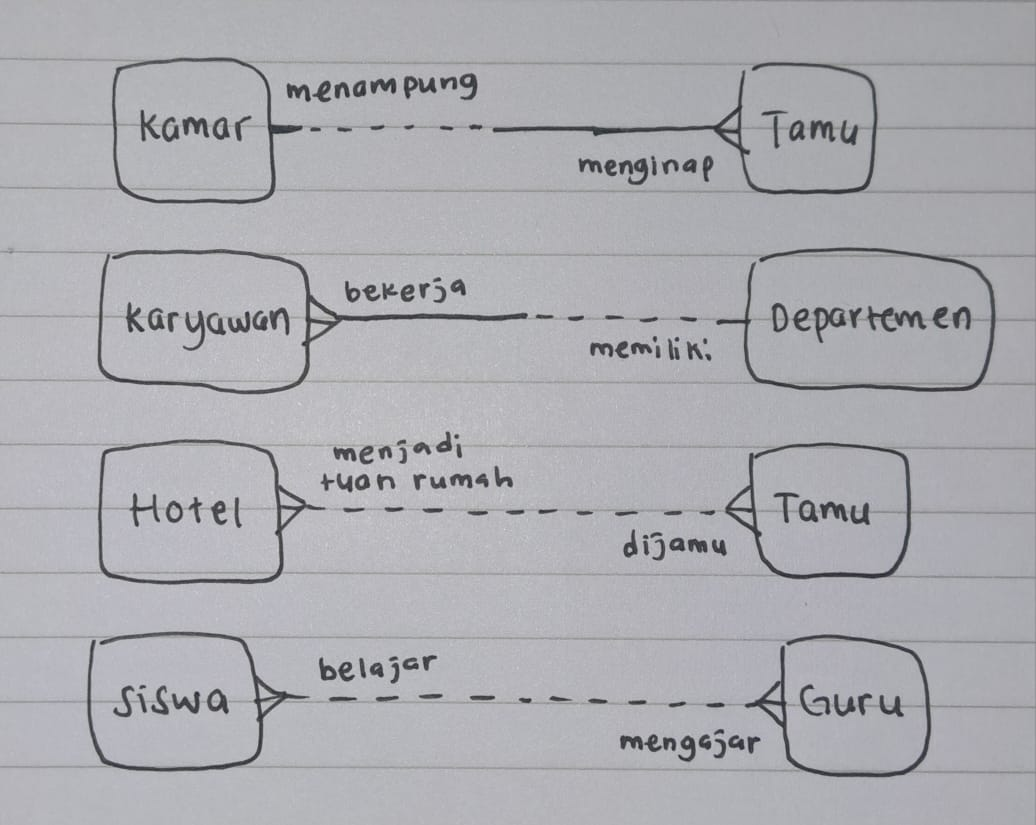 Kamar
menampung
menginap
Tamu
Karyawan
bekerja
memiliki
Departemen
Hotel
menjadi
tuan rumah
dijamu
Tamu
Siswa
belajar
mengajar
Guru